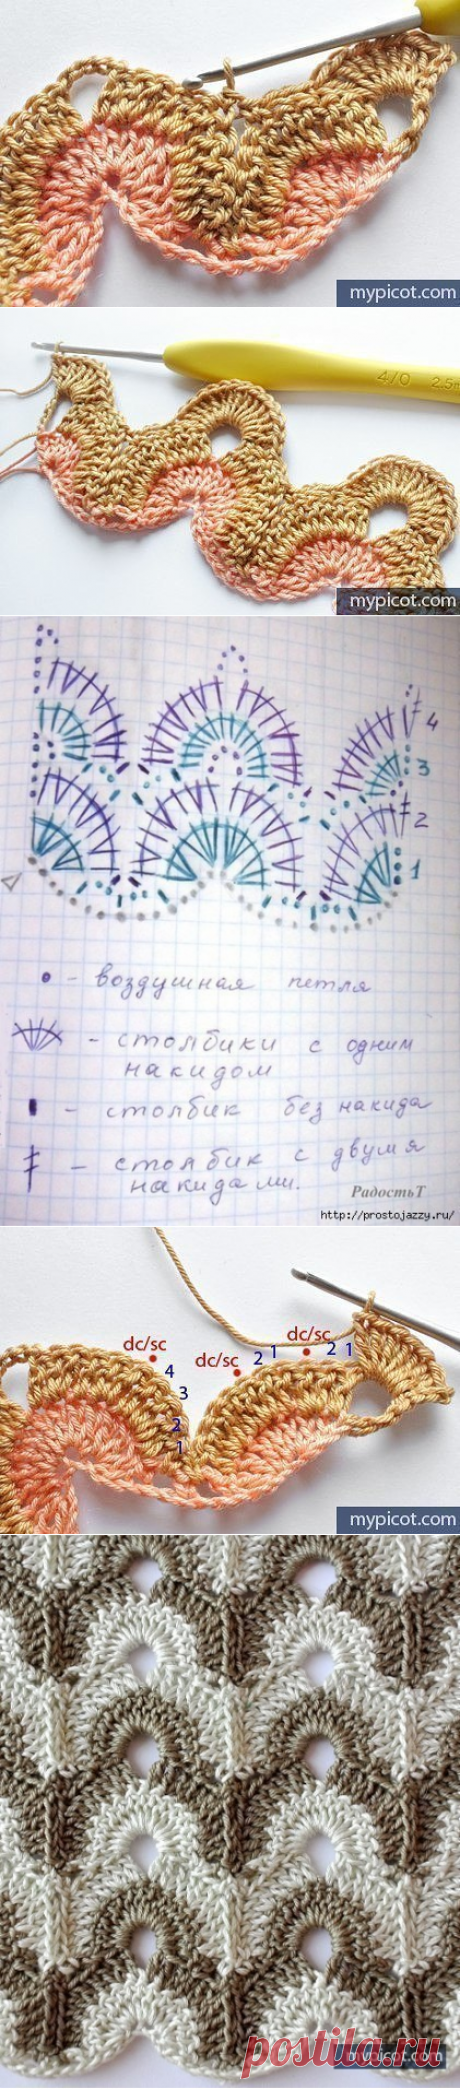 mypicot.com
4/0 2.5m
mypicot.com
4
3
2
1
• - воздушная петля
- столбики с одним
накидом
- столбик без накида
- столбик с двумя
накидами.
РадостьТ
http://prostojazzy.ru/
dc/sc
dc/sc
dc/sc
4 2 1 2 1
3
2
1
mypicot.com
mypicot.com
postila.ru